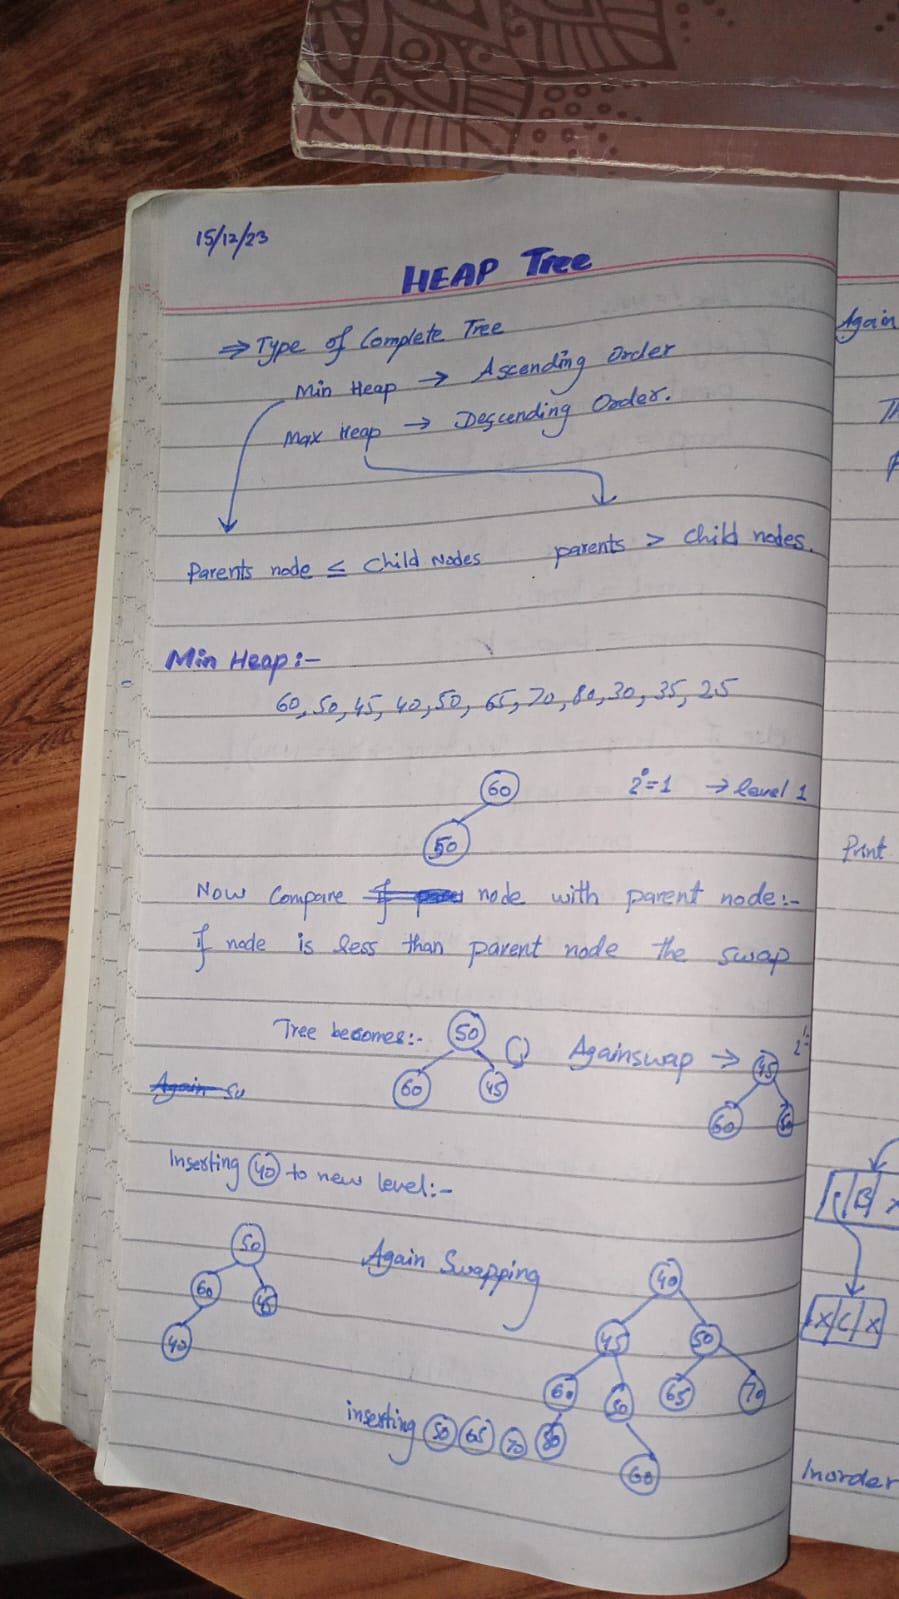 15/12/23
HEAP Tree
⇒ Type of Complete Tree
Min Heap → Ascending Order
Max Heap → Descending Order.
Parents node ≤ Child Nodes
parents > Child nodes.
Min Heap :-
60, 50, 45, 40, 50, 65, 70, 80, 30, 35, 25
60
2⁰=1 → level 1
50
Now Compare If node with parent node:-
If node is less than parent node the swap
Tree becomes:-
50
60 45
Again swap →
45
60 50
Again Su
Inserting 40 to new level:-
50
60 45
40
Again Swapping
40
45 50
60 50 65 70
inserting 50 65 70 80
60
Again
Print
B
X C X
Inorder